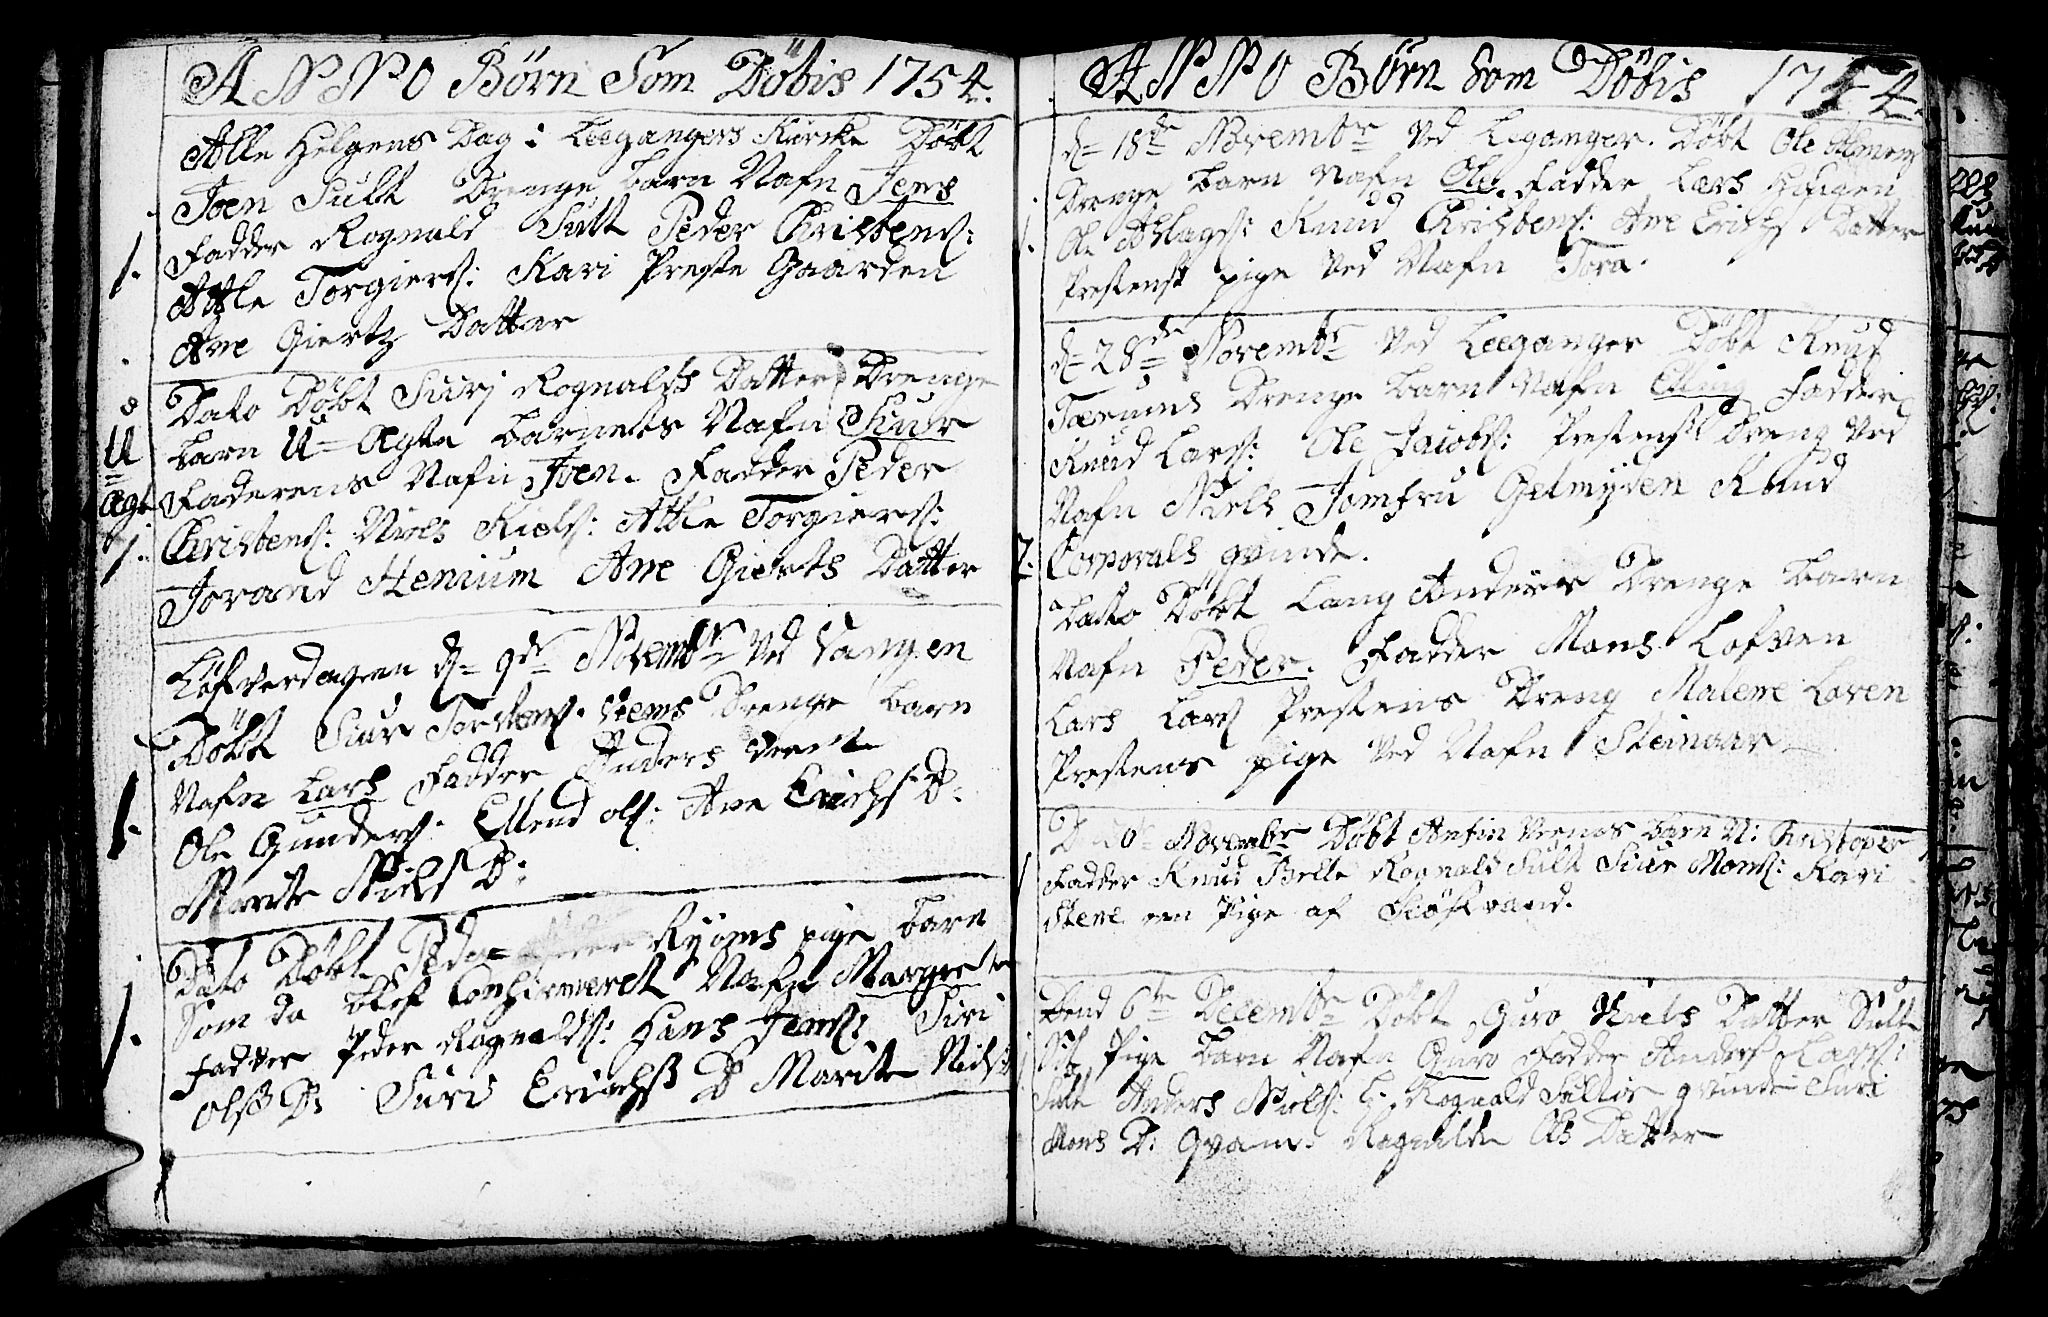 ANNO Børn Som Döbis 1754.
Alle Helgens Dag i Leegangers Kircke Döbt
Joen Sult Drenge barn Nafn Jens
Fadder Rognald Sult Peder Christens:
Attle Torgiers: Kari Preste Gaarden
Ane Giertz Datter
Dato Döbt Siurj Rognalds Datter Drenge
barn U=Ægte barnets Nafn Siur
U=
Ægt
Faderens Nafn Joen. Fadder Peder
1. Christens: Niels Niels: Attle Torgiers:
Jorand Henium Ane Gierts Datter
Löfverdagen d= 9de Novembr Ved Vangen
Döbt Siur Torstens: Drenge barn
1. Nafn Lars Fadder Anders
Ole Gunders: Ellend ols: Ane Erichs D:
Marite Niels D:
Dato Döbt Peder Ryoms pige barn
Som da blef Confirmeret Nafn Margrete
1. Fadder Peder Rognalds: Hans Jens: Siri
Olss D: Siri Erichss D Marite Niels
ANNO Börn Som Döbis 1754.
d= 18de Novembr Ved Leganger. Döbt Ole
Drenge barn Nafn Ole. Fadder Lars
1. Ole Aslags: Knud Christens: Ane Erichs Datter
Prestens pige Ved Nafn Tora.
d= 28de Novembr Ved Leeganger Döbt Knud
Drenge barn Nafn Elling Fadder
Knud Lars: Ole Jacobs: Prestens Dreng Ved
Nafn Niels Jomfru Gelmyden Knud
2. Corporals qvinde.
Dato Döbt Lang Anders Drenge barn
Nafn Peder. Fadder Mons Lofven
Lars Lars Prestens Dreng Malene Loven
Prestens pige Ved Nafn Steinaar
Novembr Döbt Anfin barn N: Christoper
1 Fadder Knud Belle Rognald Sult Siur Mons: Kari
Stene een Pige af
Dend 6te Decembr Döbt Guro Niels Datter Sult
Pige barn Nafn Guro Fadder Anders Lars:
Sult Anders Niels: Rognald Sultes qvinde Siri
Mons D: Qvam: Rognilde Ols Datter